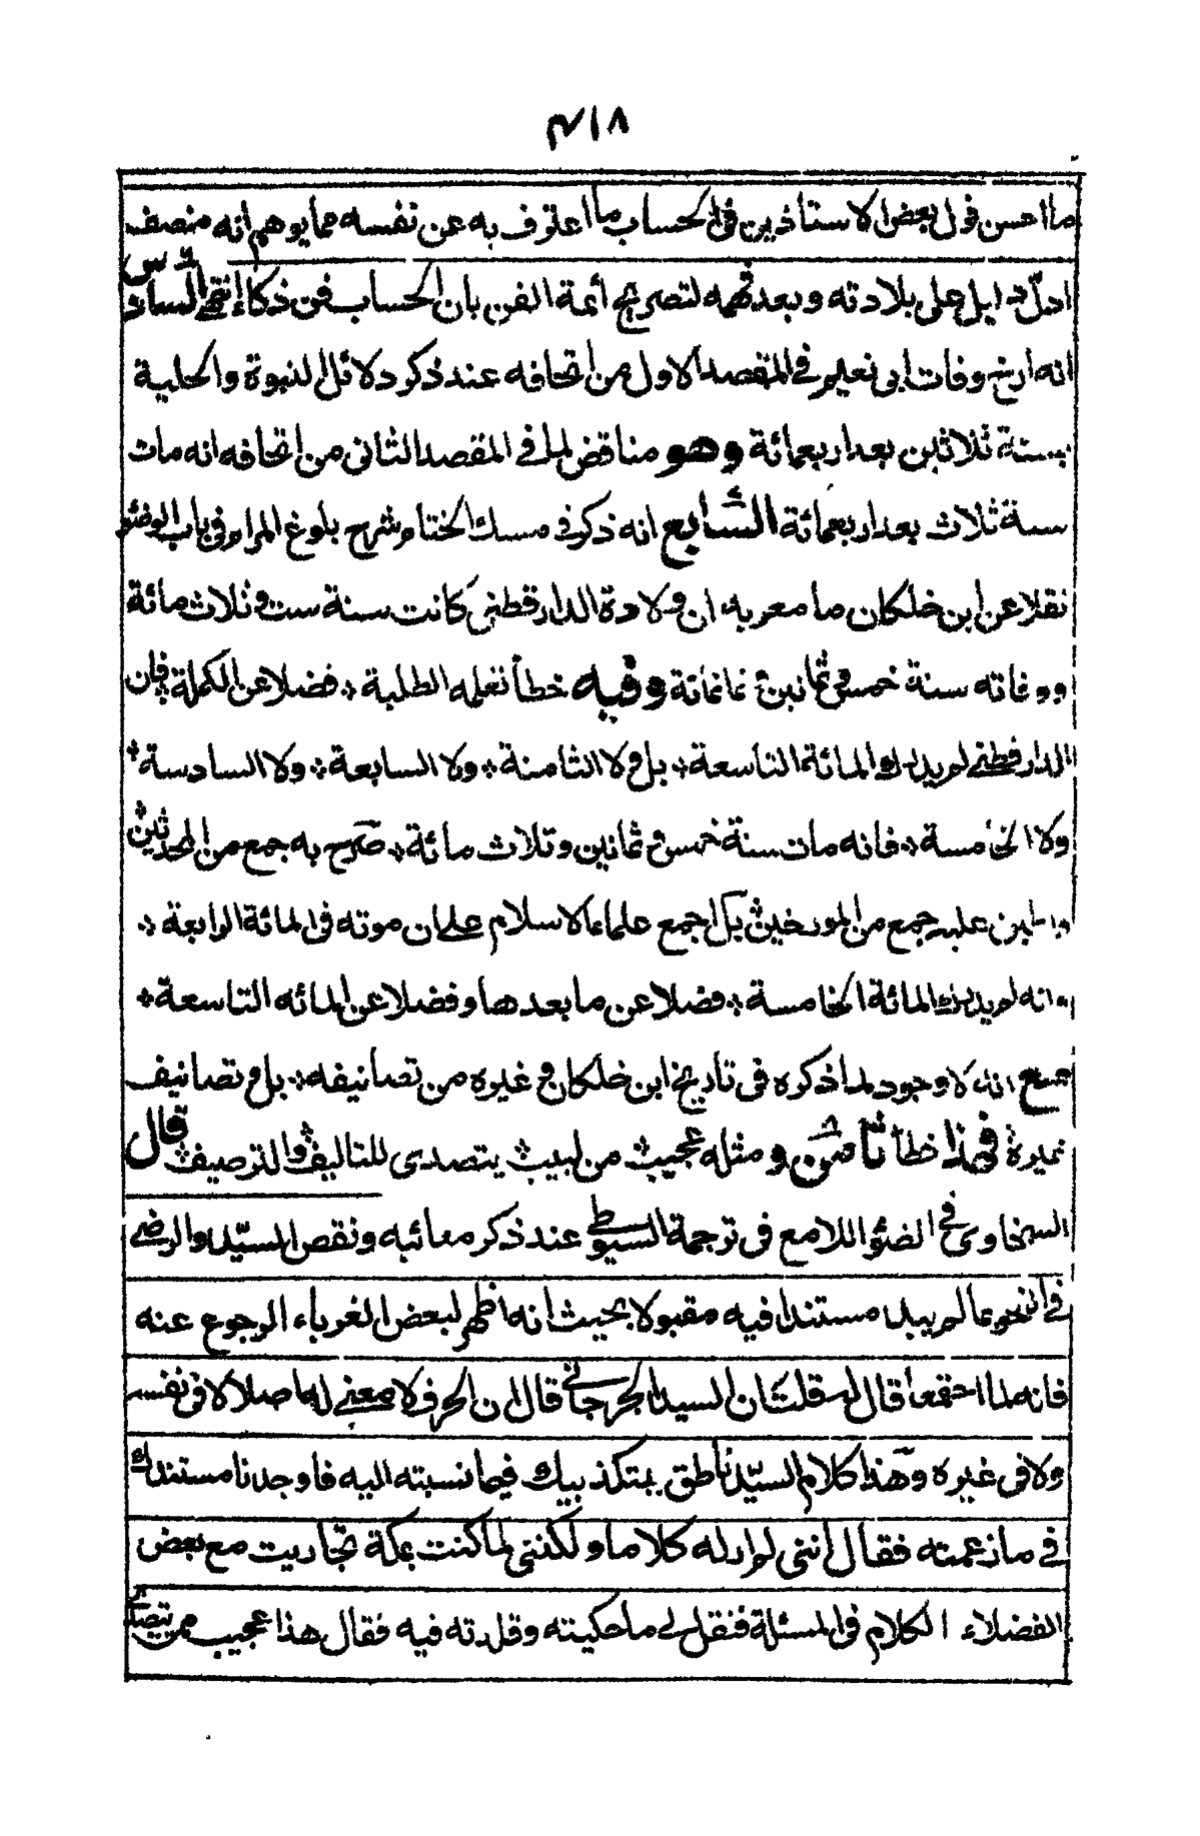 ٤١٨
ما احسن قول بعض الاستاذين في الحساب ما اعترف به عن نفسه مما يوهم انه منصف
ادلّ دليل على بلادته وبعد فهمه لتصريح أئمة الفن بان الحساب فن ذكاء انتهى السادس
انه ارخ وفات ابى نعيم في المقصد الاول من اتحافه عند ذكر دلائل النبوة والحلية
بسنة ثلاثين بعد اربعمائة وهو مناقض لما في المقصد الثانى من اتحافه انه مات
سنة ثلاث بعد اربعمائة السابع انه ذكر في مسك الختام شرح بلوغ المرام في باب الوضوء
نقلا عن ابن خلكان ما معربه ان ولادة الدارقطنى كانت سنة ست وثلاث مائة
ووفاته سنة خمس وثمانين وثمانمائة وفيه خطأ تعلمه الطلبة * فضلا عن الكملة * فان
الدارقطنى لم يدرك المائة التاسعة * بل ولا الثامنة * ولا السابعة * ولا السادسة *
ولا الخامسة * فانه مات سنة خمس وثمانين وثلاث مائة * صرّح به جمع من المحدثين
عليه جمع من المورخين بل اجمع علماء الاسلام على ان موته في المائة الرابعة *
وانه لم يدرك المائة الخامسة * فضلا عن ما بعدها وفضلا عن المائه التاسعة *
مع انه لا وجود لما ذكره فى تاريخ ابن خلكان وغيره من تصانيفه * بل وتصانيف
غيره فهذا خطأ ثامن ومثله عجيب من لبيب يتصدى للتاليف والترصيف قال
السخاوى في الضوء اللامع فى ترجمة السيوطى عند ذكر معائبه ونقص السيّد والرضى
في النحو بما لم يبد مستندا فيه مقبولا بحيث انه اظهر لبعض الغرباء الرجوع عنه
فانه لما اجتمعا قال له قلت ان السيد الجرجانى قال ان الحرف لا معنى له اصلا لا فى نفسه
ولا فى غيره وهذا كلام السيّد ناطق بتكذيبك فيما نسبته اليه فاوجدنا مستندك
في ما زعمته فقال اننى لم ار له كلاما ولكننى لما كنت بمكة تجاريت مع بعض
الفضلاء الكلام فى المسئلة فنقل لي ما حكيته وقلدته فيه فقال هذا عجيب ممن يتصدى